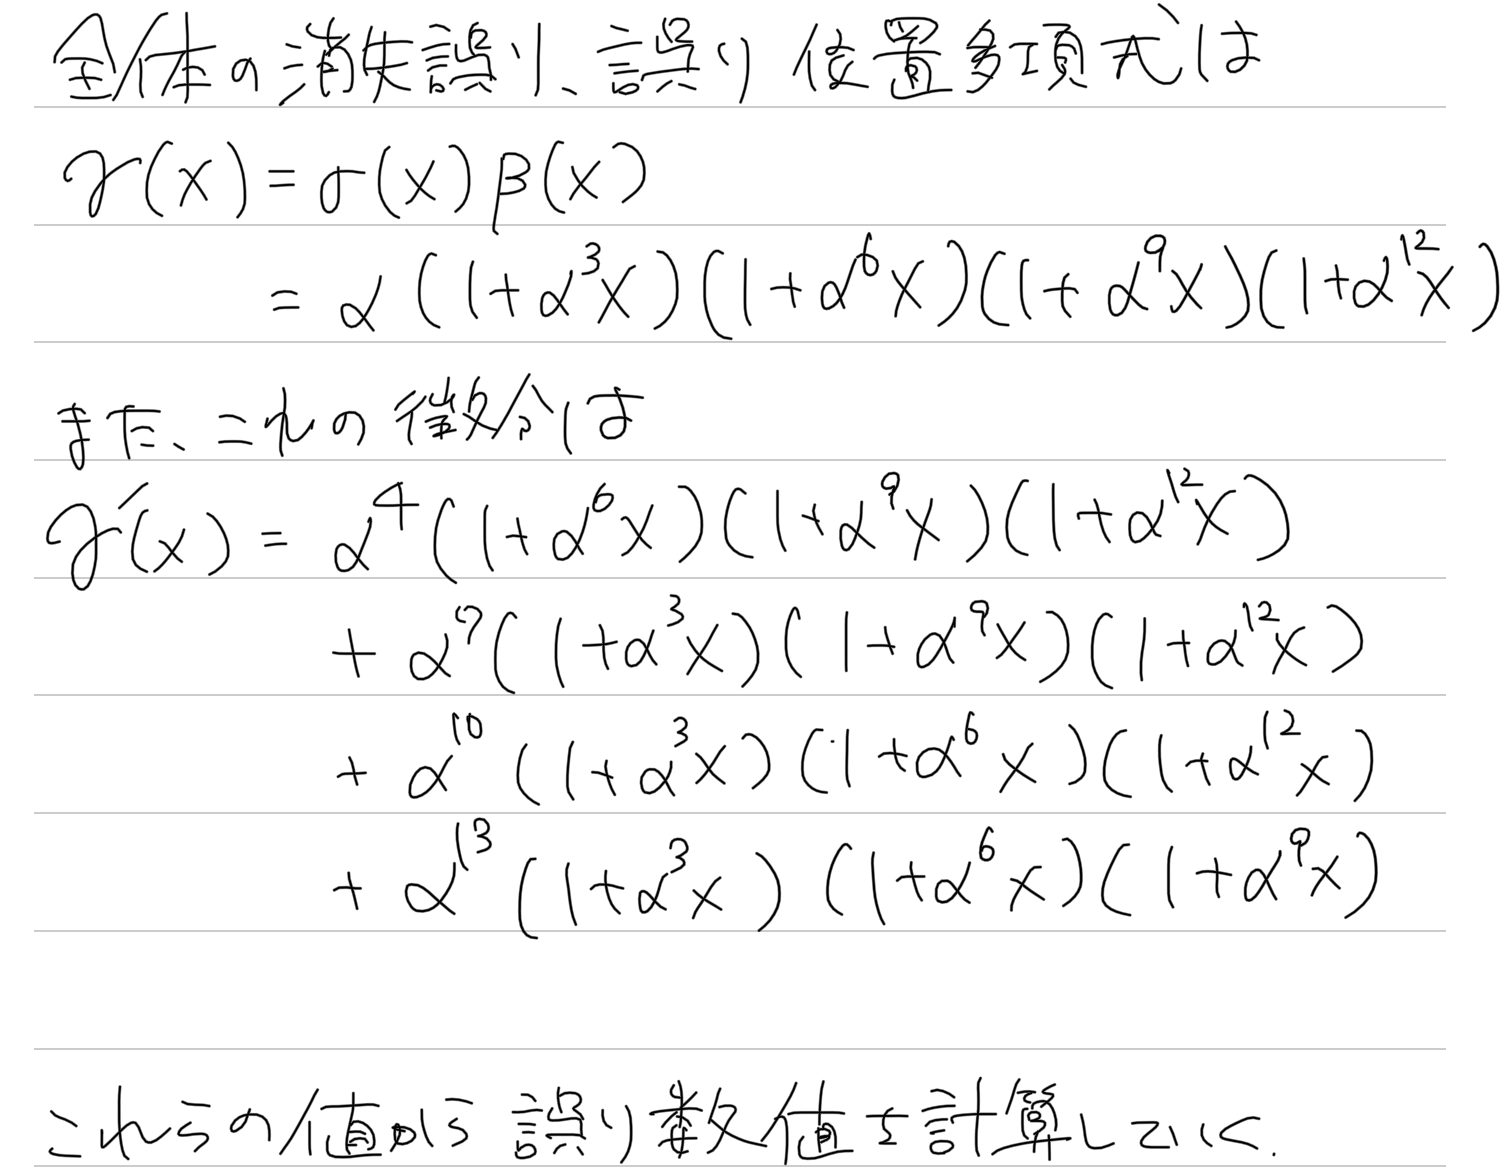 全体の消失誤り、誤り位置多項式は
γ(x) = σ(x) β(x)
= α (1+α³x)(1+α⁶x)(1+α⁹x)(1+α¹²x)
また、これの微分は
γ'(x) = α⁴(1+α⁶x)(1+α⁹x)(1+α¹²x)
+ α⁷(1+α³x)(1+α⁹x)(1+α¹²x)
+ α¹⁰(1+α³x)(1+α⁶x)(1+α¹²x)
+ α¹³(1+α³x)(1+α⁶x)(1+α⁹x)
これらの値から誤り数値を計算していく.